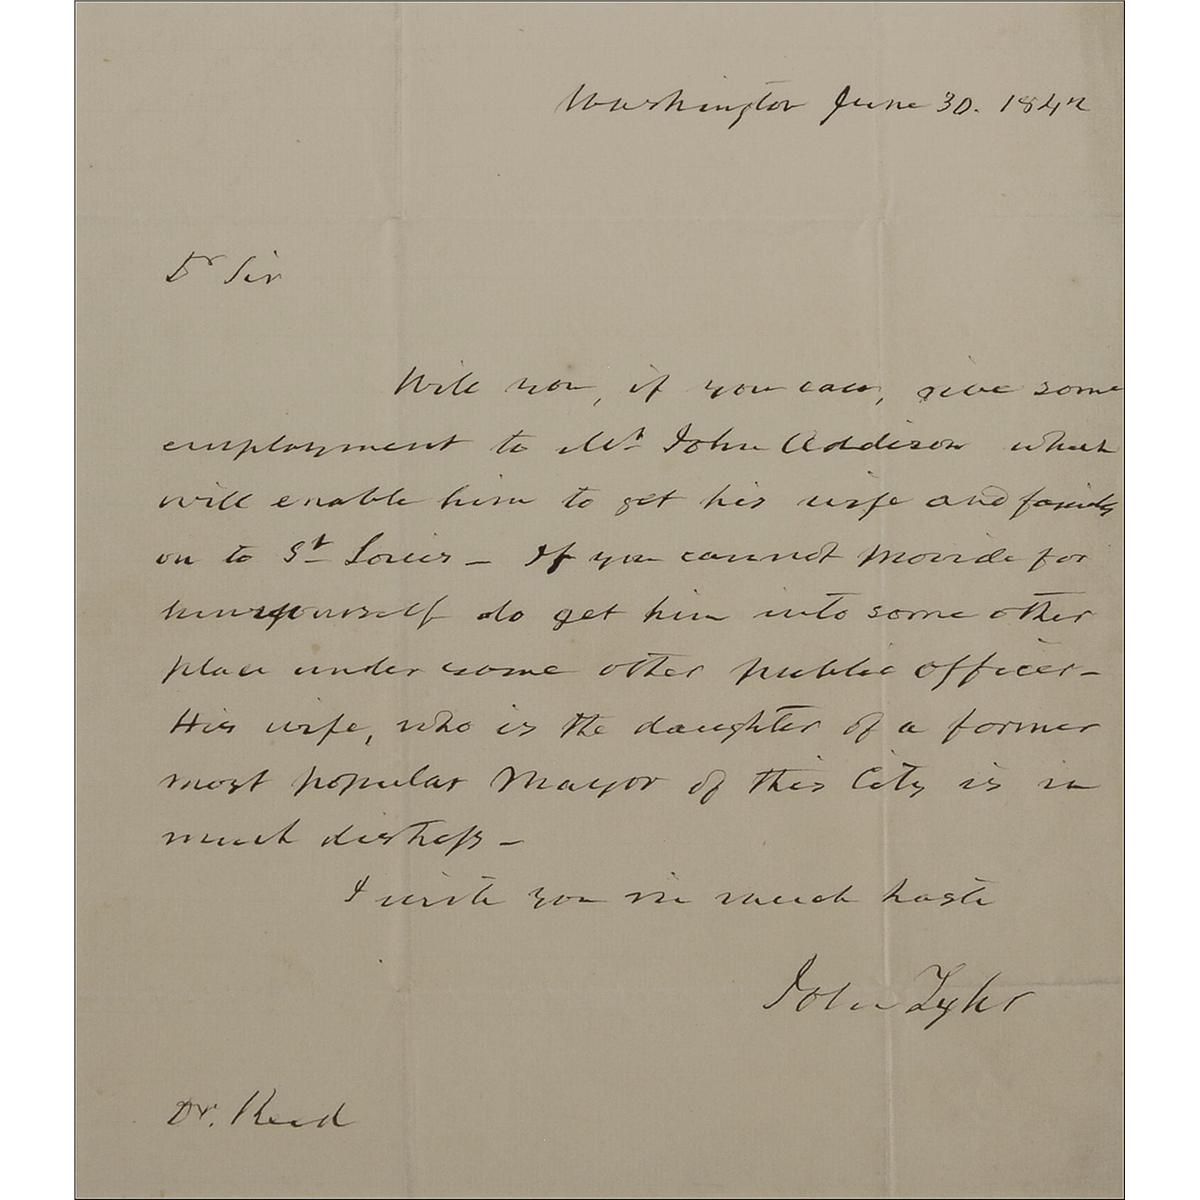 Washington June 30. 1842
Dr Sir
Will you, if you can, give some
employment to Mr John Addison which
will enable him to get his wife and family
on to St Louis – If you cannot provide for
him yourself do get him into some other
place under some other public officer –
His wife, who is the daughter of a former
most popular Mayor of this City is in
much distress –
I write you in much haste
John Tyler
Dr. Reed